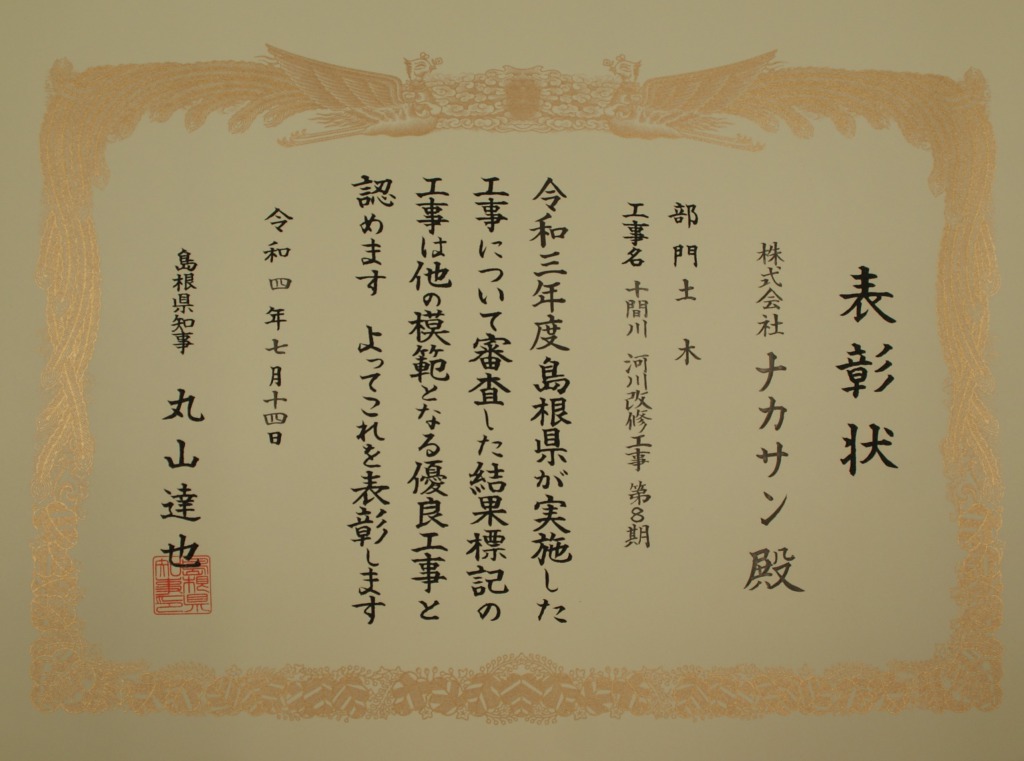 表彰状
株式会社 ナカサン 殿
部門 土木
工事名 十間川 河川改修工事 第8期
令和三年度島根県が実施した
工事について審査した結果標記の
工事は他の模範となる優良工事と
認めます よってこれを表彰します
令和四年七月十四日
島根県知事 丸山達也
島根県知事印